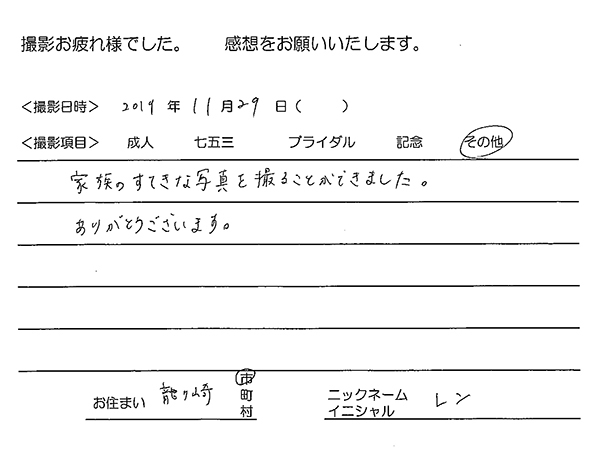 撮影お疲れ様でした。　感想をお願いいたします。
＜撮影日時＞ 2019 年 11月29日（　）
＜撮影項目＞ 成人 七五三 ブライダル 記念 その他
家族のすてきな写真を撮ることができました。
ありがとうございます。
お住まい 龍ヶ崎 市 町 村 ニックネーム イニシャル レン